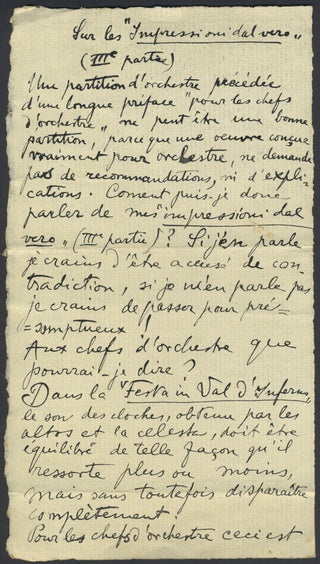 Sur les "Impressioni dal vero"
(IIIe partie)
Une partition d'orchestre précédée
d'une longue préface "pour les chefs
d'orchestre" ne peut être une bonne
partition, parce que une oeuvre conçue
vraiment pour orchestre, ne demande
pas de recommandations, ni d'expli-
cations. Coment puis-je donc
parler de mes "impressioni dal
vero" (IIIe partie)? Si j'en parle
je crains d'être accusé de con-
tradiction, si je n'en parle pas
je crains de passer pour pré-
=somptueux!
Aux chefs d'orchestre que
pourrai-je dire?
Dans la "Festa in Val d'Inferno"
le son des cloches, obtenu par les
altos et la celesta, doit être
équilibré de telle façon qu'il
ressorte plus ou moins,
mais sans toutefois disparaître
complètement.
Pour les chefs d'orchestre ceci est